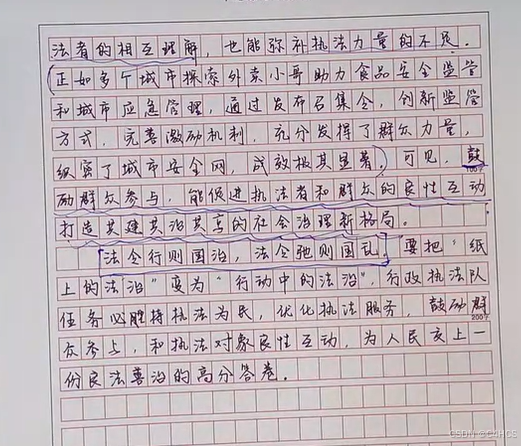 法者的相互理解，也能弥补执法力量的不足。
（正如多个城市探索外卖小哥助力食品安全监管
和城市应急管理，通过发布召集令，创新监管
方式，完善激励机制，充分发挥了群众力量，
织密了城市安全网，成效极其显著）可见，鼓
100字
励群众参与，能促进执法者和群众的良性互动
打造共建共治共享的社会治理新格局。
法令行则国治，法令弛则国乱，要把“纸
上的法治”变为“行动中的法治”，行政执法队
伍务必胜持执法为民，优化执法服务，鼓励群
200字
众参与，和执法对象良性互动，为人民交上一
份良法善治的高分答卷。